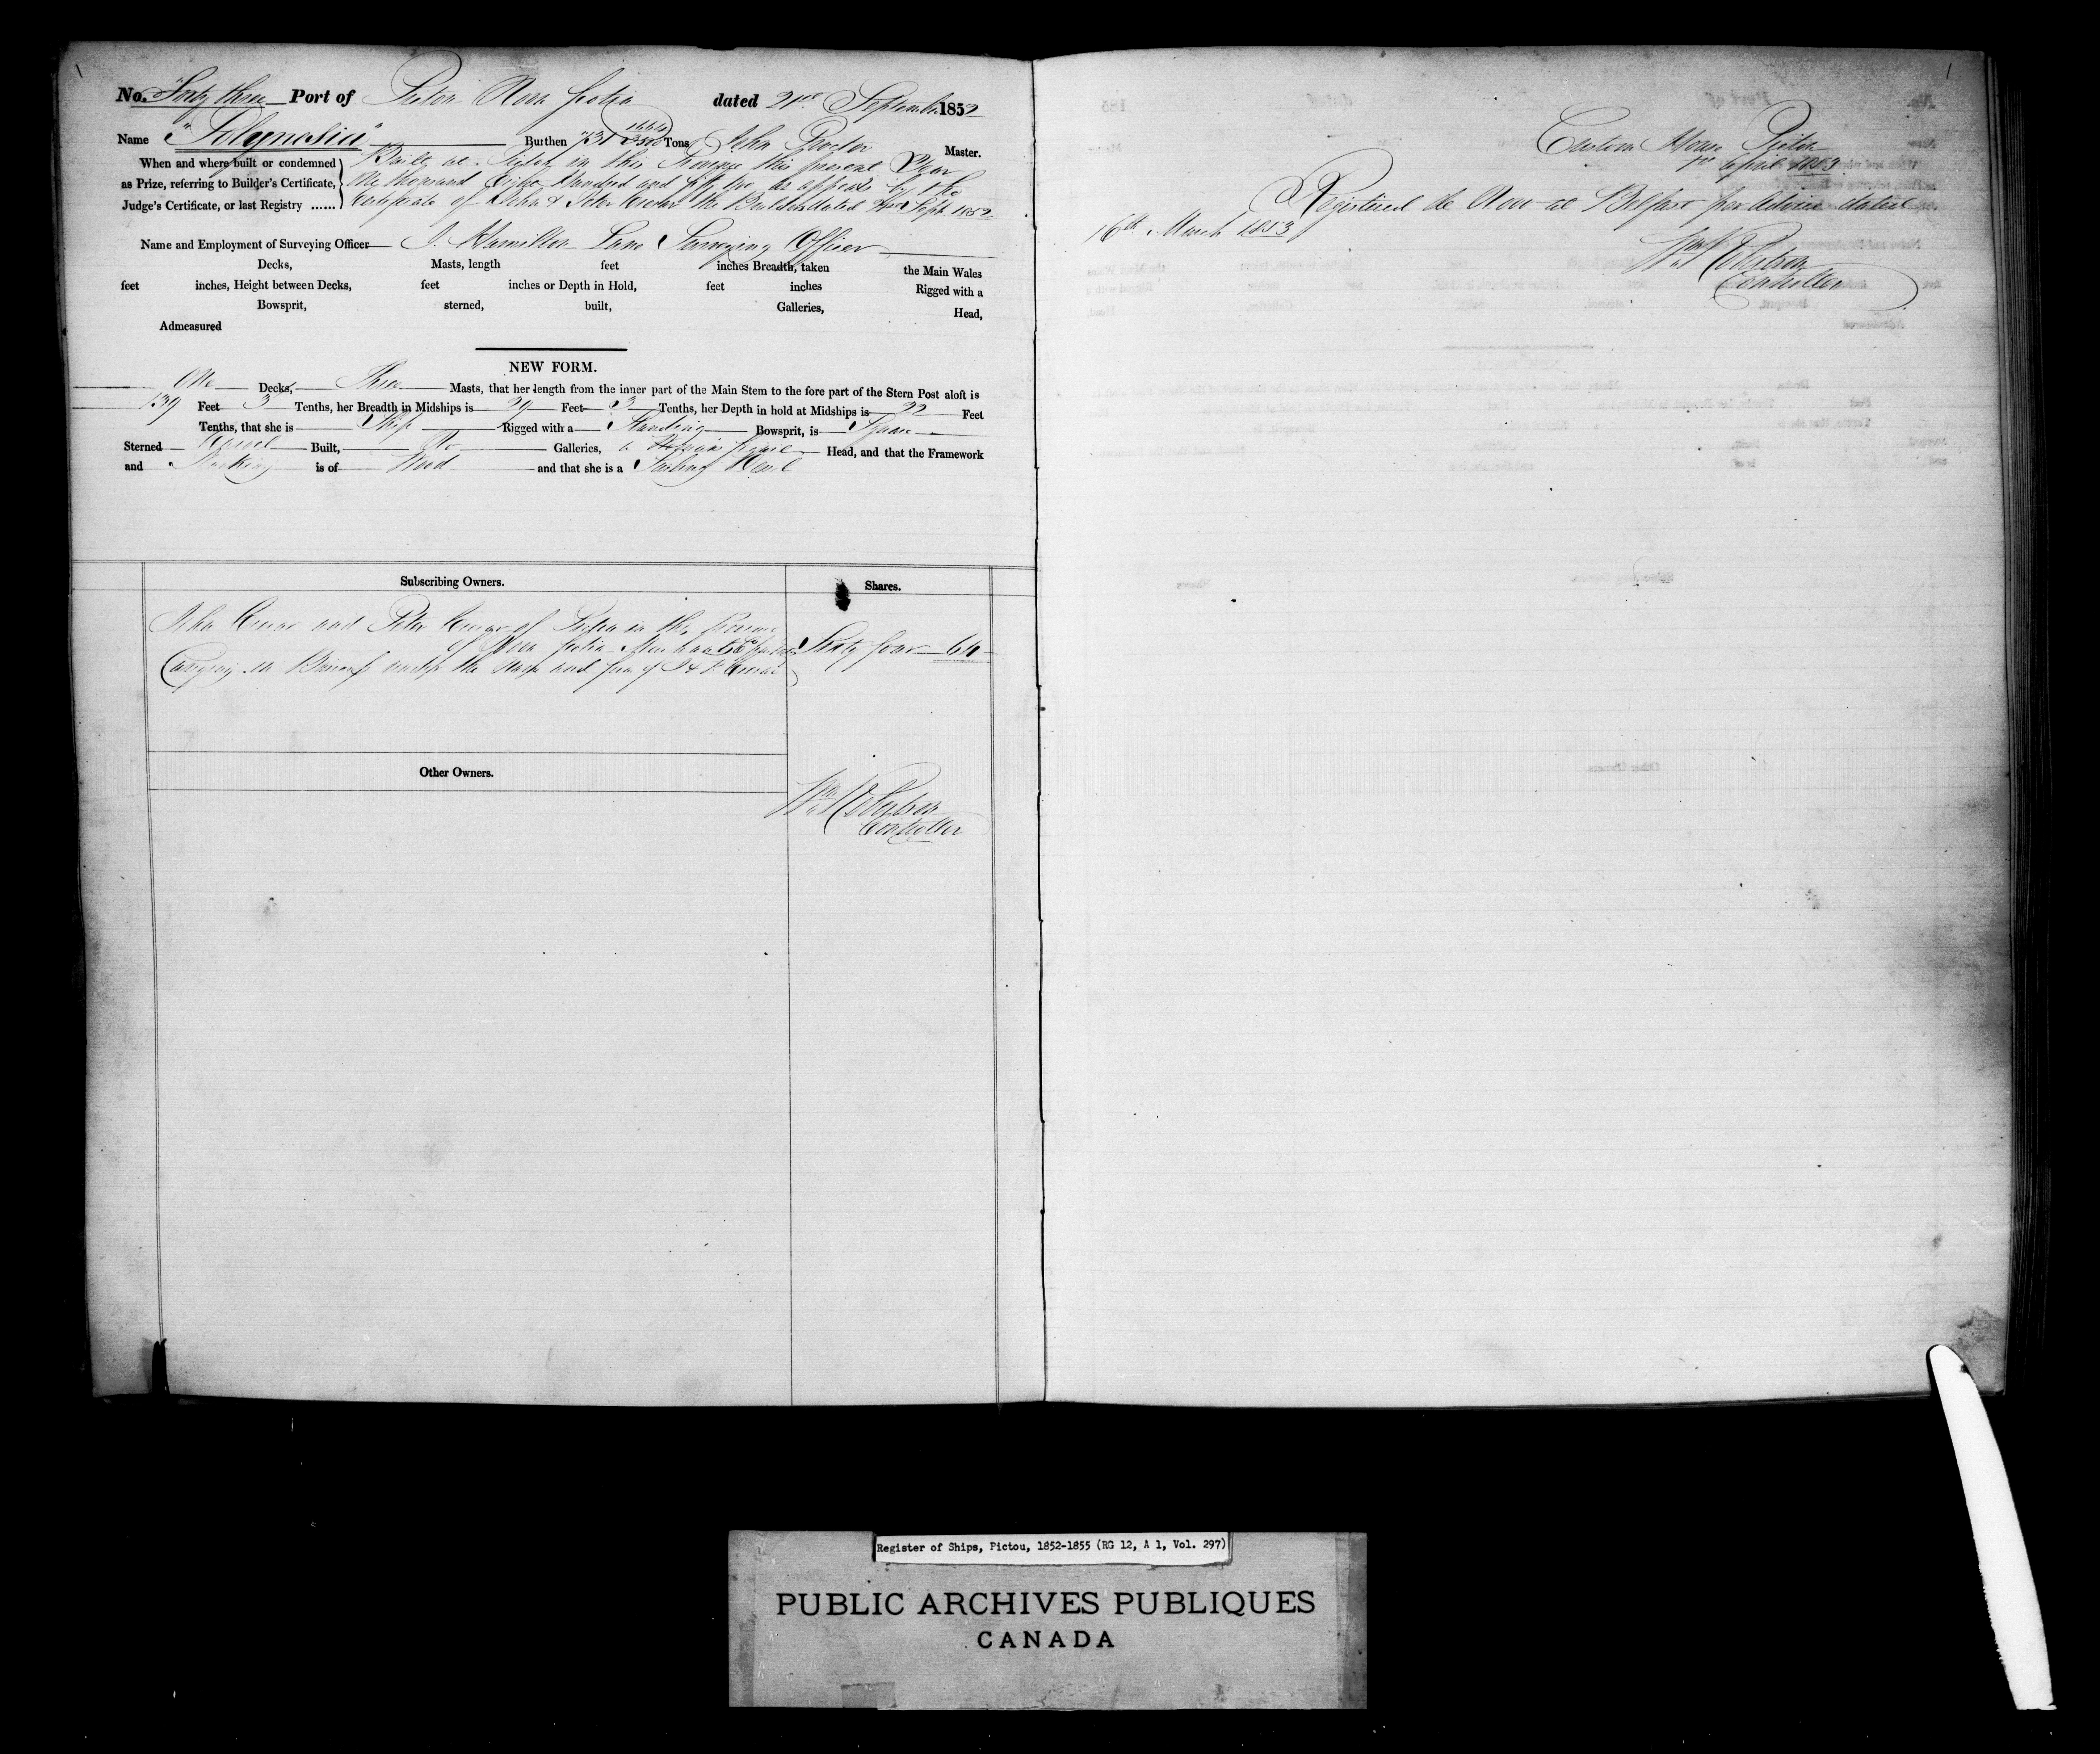 No. Forty three Port of Pictou Nova Scotia dated 21st September 1852
Name "Polynesia" Burthen 731 Tons John Proctor Master.
When and where built or condemned
as Prize, referring to Builder's Certificate,
Judge's Certificate, or last Registry ......
Built at Pictou in this Province this present Year
One thousand Eight Hundred and fifty two as appears by the
Certificate of John & Peter Crerar the Builders dated Sept 1852
Name and Employment of Surveying Officer J. Hamilton Lane Surveying Officer
Decks, Masts, length feet inches Breadth, taken the Main Wales
feet inches, Height between Decks, feet inches or Depth in Hold, feet inches Rigged with a
Bowsprit, sterned, built, Galleries, Head,
Admeasured
NEW FORM.
One Decks, Three Masts, that her length from the inner part of the Main Stem to the fore part of the Stern Post aloft is
139 Feet 3 Tenths, her Breadth in Midships is 29 Feet 3 Tenths, her Depth in hold at Midships is 22 Feet
Tenths, that she is Ship Rigged with a Standing Bowsprit, is Square
Sterned Carvel Built, No Galleries, a Head, and that the Framework
and Planking is of Wood and that she is a Sailing Vessel
Subscribing Owners. Shares.
John Crerar and Peter Crerar of Pictou in the Province
of Nova Scotia Merchants & Copartners Sixty four 64
Carrying on Business under the Name and firm of J & P Crerar
Other Owners.
Wm Robertson
Controller
1
Custom House Pictou
1st April 1853
Registered de Novo at Belfast per advice dated
16th March 1853
Wm Robertson
Controller
Register of Ships, Pictou, 1852-1855 (RG 12, A 1, Vol. 297)
PUBLIC ARCHIVES PUBLIQUES
CANADA